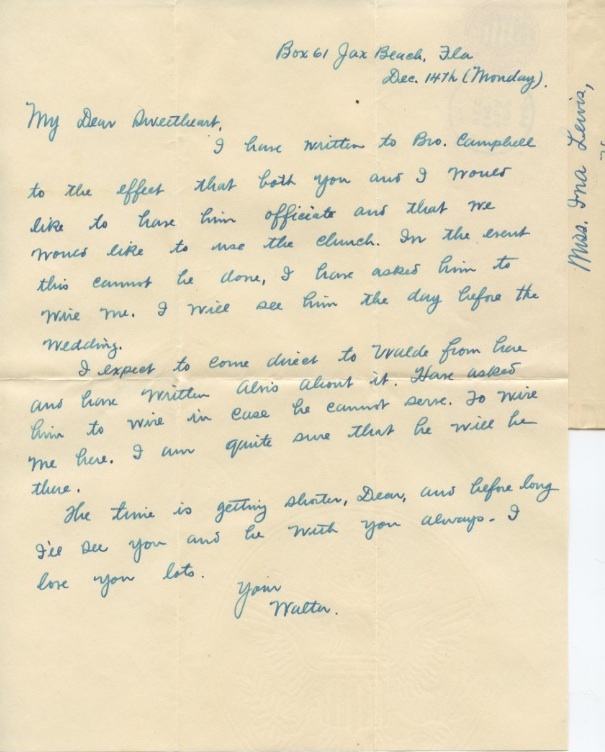 Box 61 Jax Beach, Fla
Dec. 14th (Monday).
My Dear Sweetheart,
I have written to Bro. Campbell
to the effect that both you and I would
like to have him officiate and that we
would like to use the church. In the event
this cannot be done, I have asked him to
wire me. I will see him the day before the
wedding.
I expect to come direct to Uvalde from here
and have written Alvis about it. Have asked
him to wire in case he cannot serve. To wire
me here. I am quite sure that he will be
there.
The time is getting shorter, Dear, and before long
I'll see you and be with you always. I
love you lots.
Your
Walter.
Miss. Ina Lewis,